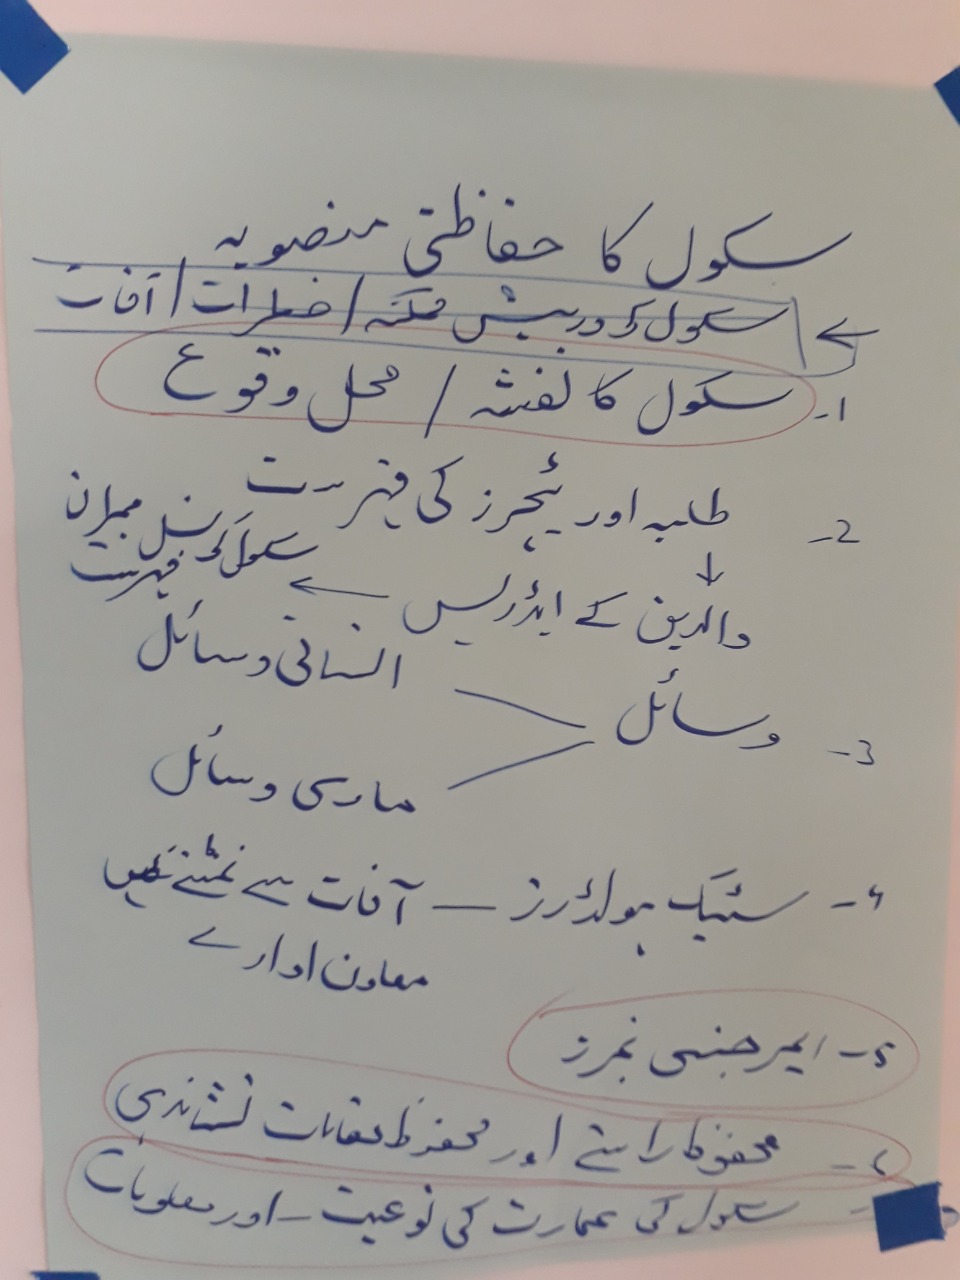 سکول کا حفاظتی منصوبہ
سکول کو درپیش ممکنہ / خطرات / آفات
1- سکول کا نقشہ / محل وقوع
2- طلبہ اور ٹیچرز کی فہرست
والدین کے ایڈریس ← سکول کونسل ممبران کی فہرست
3- وسائل
انسانی وسائل
مادی وسائل
4- سٹیک ہولڈرز — آفات سے نمٹنے میں
معاون ادارے
5- ایمرجنسی نمبرز
6- محفوظ راستے اور محفوظ مقامات نشاندہی
سکول کی عمارت کی نوعیت - اور معلومات